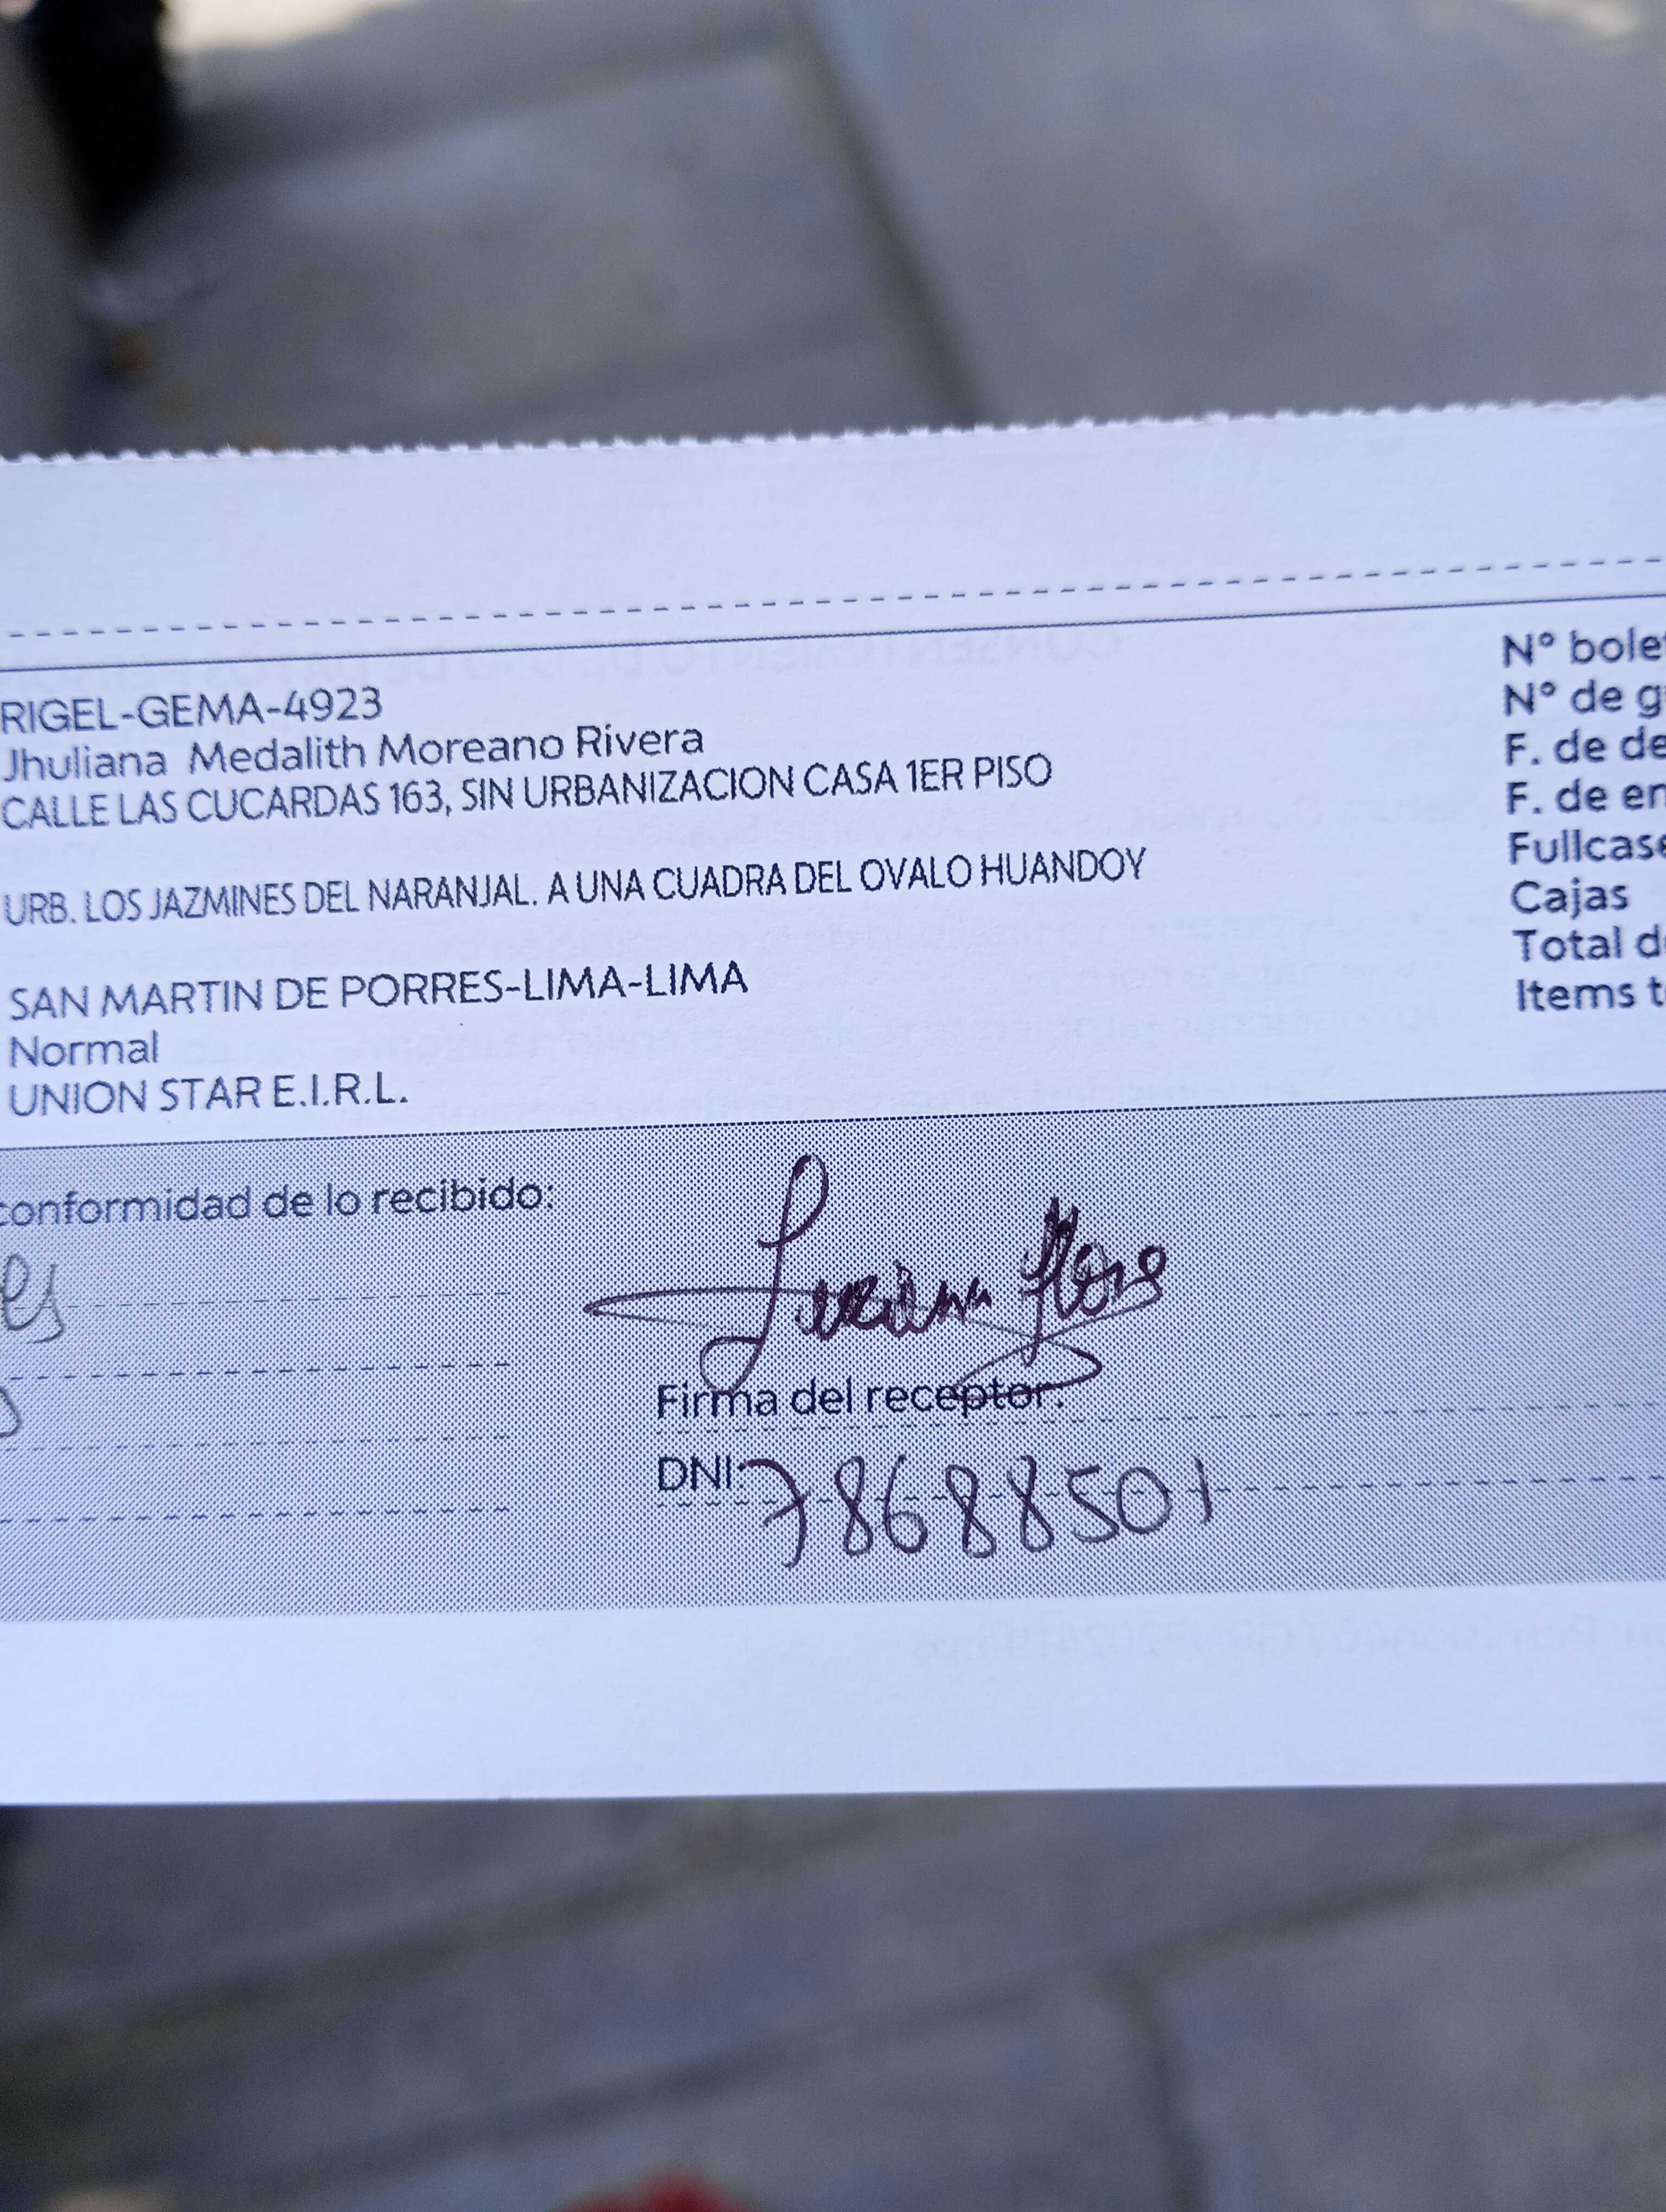 RIGEL-GEMA-4923
Jhuliana Medalith Moreano Rivera
CALLE LAS CUCARDAS 163, SIN URBANIZACION CASA 1ER PISO
URB. LOS JAZMINES DEL NARANJAL. A UNA CUADRA DEL OVALO HUANDOY
SAN MARTIN DE PORRES-LIMA-LIMA
Normal
UNION STAR E.I.R.L.
N° bole
N° de g
F. de de
F. de en
Fullcase
Cajas
Total d
Items t
conformidad de lo recibido:
es
Firma del receptor:
DNI: 78688501